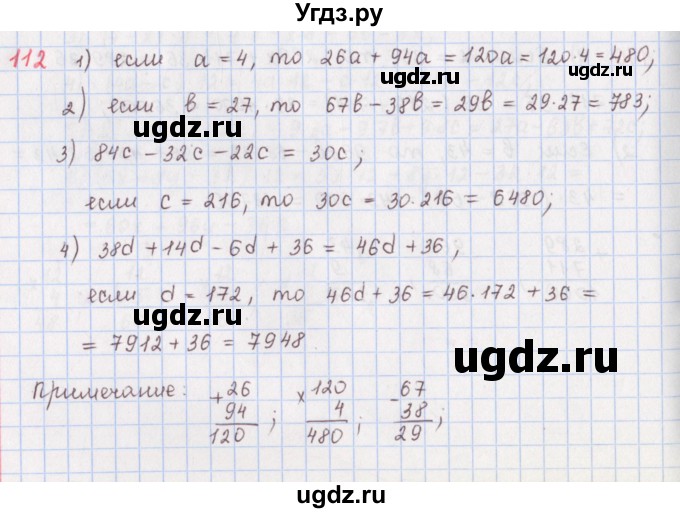 Угдз.ру
112 1) если a = 4, то 26a + 94a = 120a = 120·4 = 480;
ugdz.ru
2) если b = 27, то 67b − 38b = 29b = 29·27 = 783;
ugdz.ru
3) 84c − 32c − 22c = 30c;
если c = 216, то 30c = 30·216 = 6480;
ugdz.ru
4) 38d + 14d − 6d + 36 = 46d + 36,
если d = 172, то 46d + 36 = 46·172 + 36 =
ugdz.ru
= 7912 + 36 = 7948
ugdz.ru
Примечание: +26 ×120 −67
94 4 38
120 ; 480 ; 29 ;
ugdz.ru